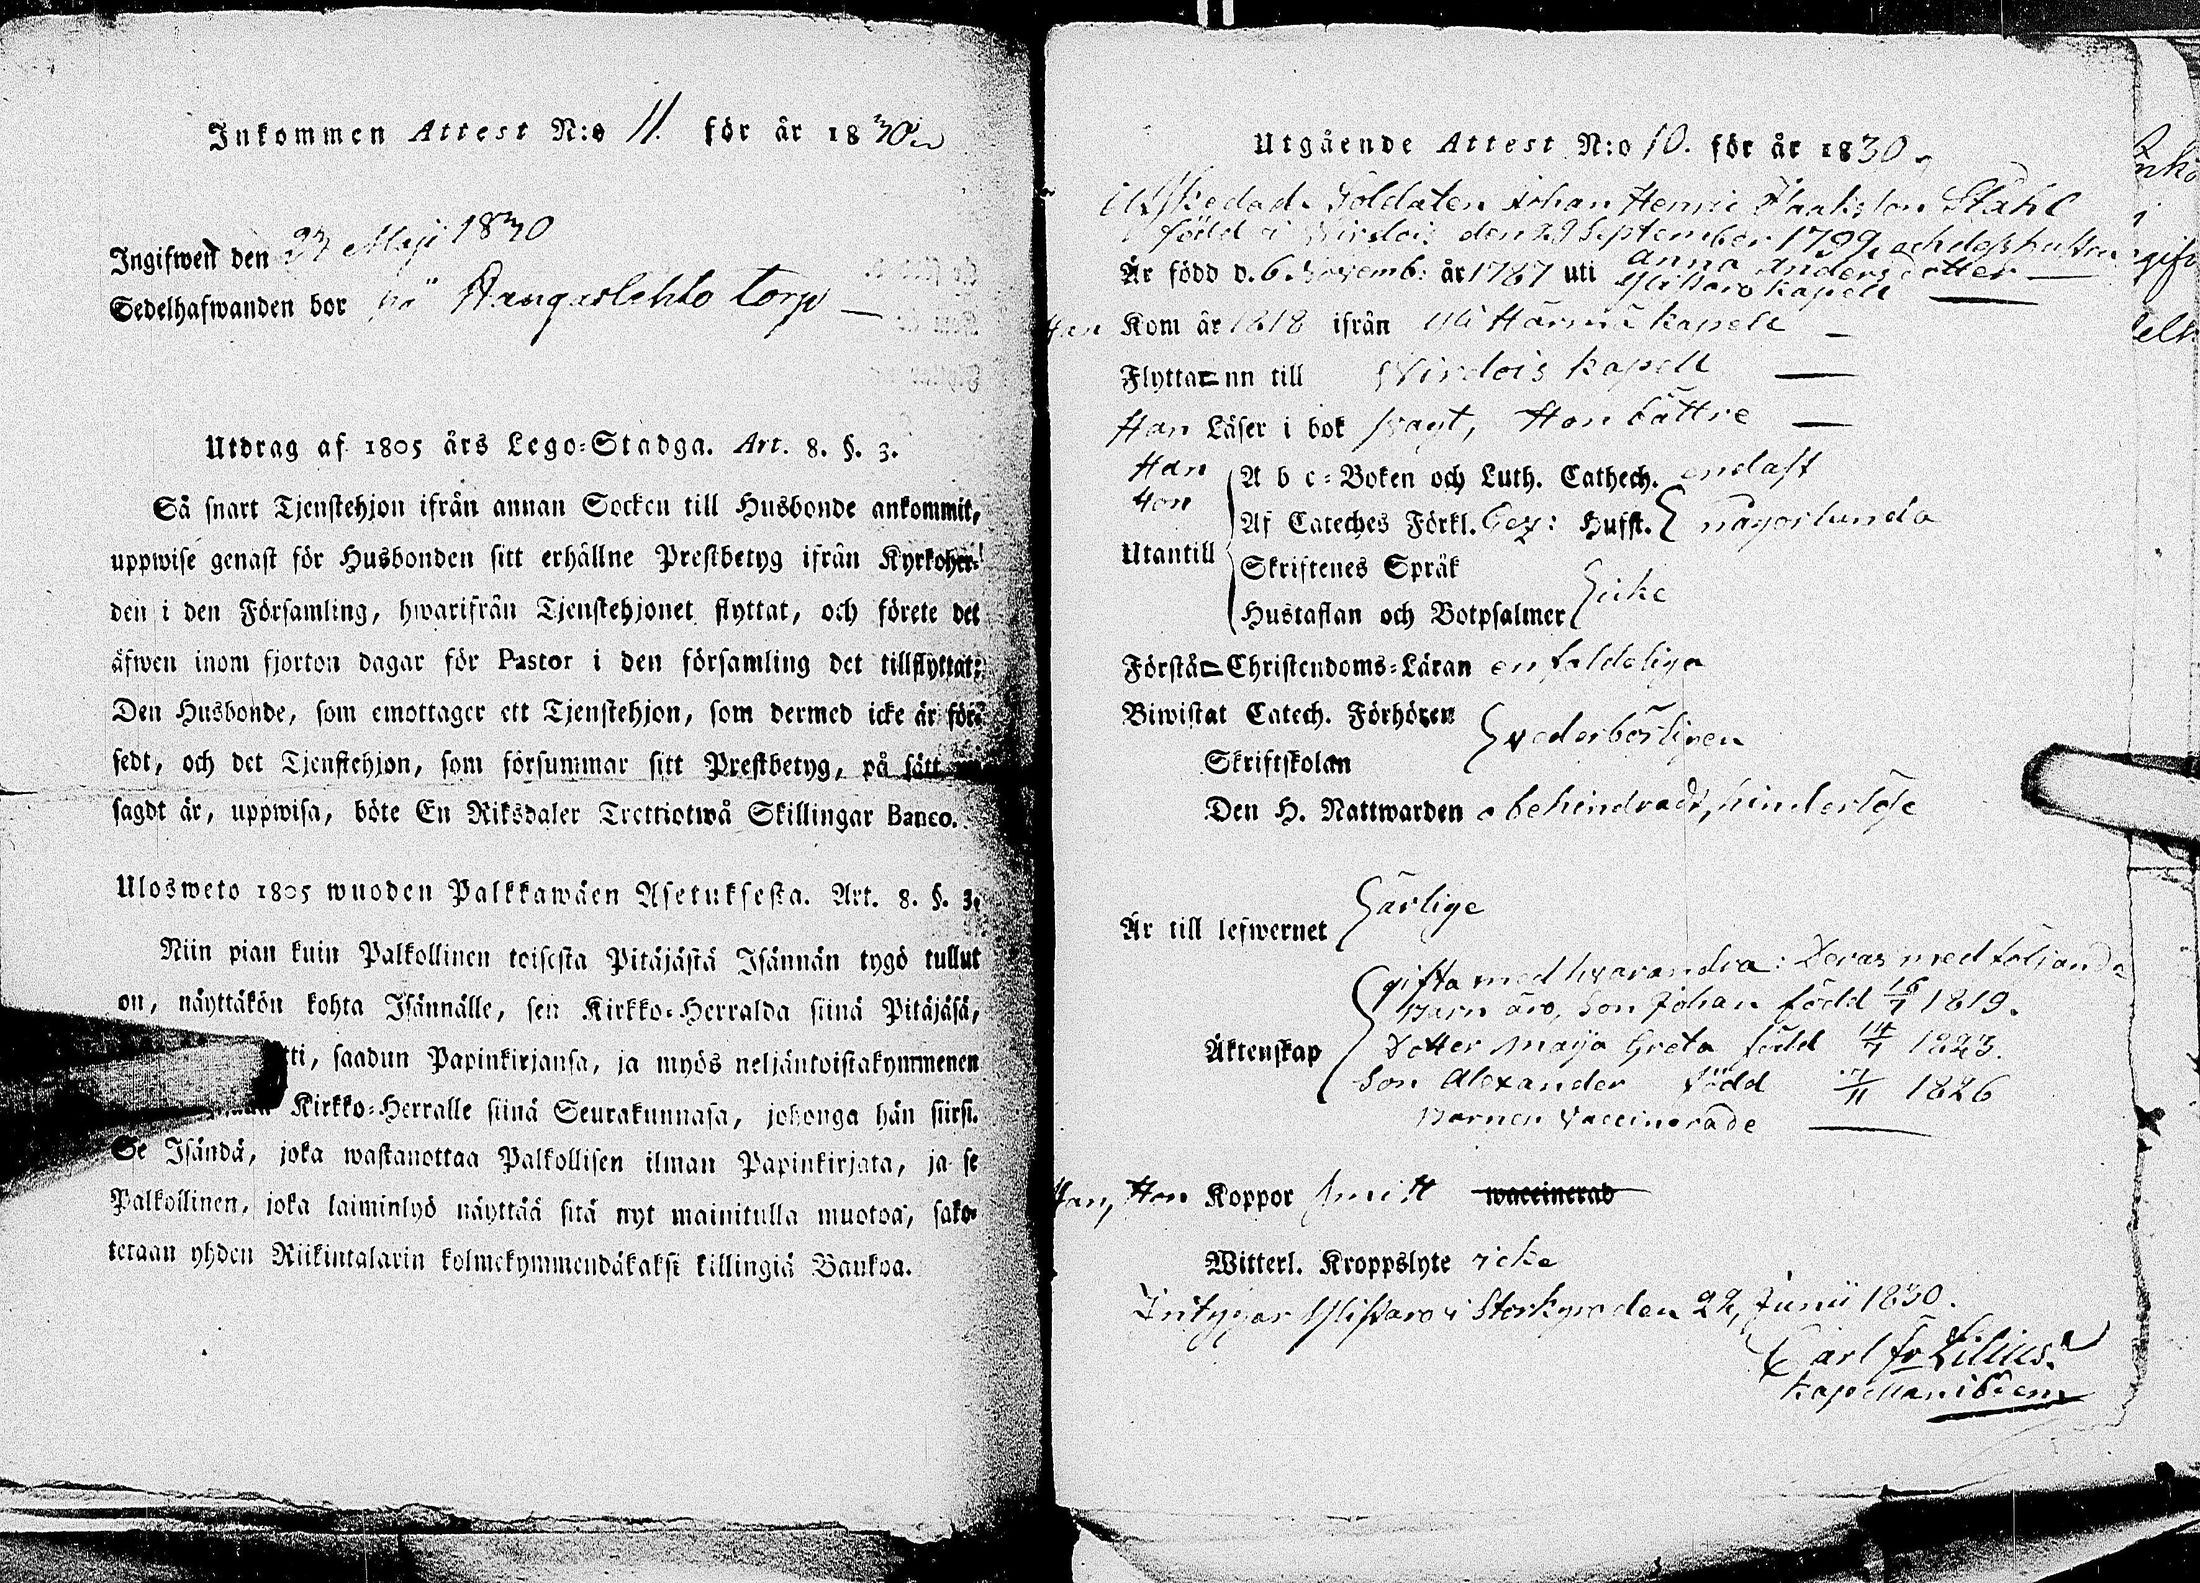 Inkommen Attest N:o 11. för år 1830
Ingifwen den 23 Maji 1830
Sedelhafwanden bor på Kangaslehto torp —
Utdrag af 1805 års Lego=Stadga. Art. 8. §. 3.
Så snart Tjenstehjon ifrån annan Socken till Husbonde ankommit,
uppwise genast för Husbonden sitt erhållne Prestbetyg ifrån Kyrkoher-
den i den Församling, hwarifrån Tjenstehjonet flyttat, och förete det
äfwen inom fjorton dagar för Pastor i den församling det tillflyttat;
Den Husbonde, som emottager ett Tjenstehjon, som dermed icke är för-
sedt, och det Tjenstehjon, som försummar sitt Prestbetyg, på sätt
sagdt är, uppwisa, böte En Riksdaler Trettiotwå Skillingar Banco.
Ulosweto 1805 wuoden Palkkawäen Asetuksesta. Art. 8. §. 3.
Niin pian kuin Palkollinen toisesta Pitäjästä Isännän tygö tullut
on, näyttäkön kohta Isännälle, sen Kirkko=Herralda siinä Pitäjäsä,
tti, saadun Papinkirjansa, ja myös neljäntoistakymmenen
Kirkko=Herralle siinä Seurakunnasa, johonga hän siirsi.
Se Isändä, joka wastanottaa Palkollisen ilman Papinkirjata, ja se
Palkollinen, joka laiminlyö näyttää sitä nyt mainitulla muotoa, sako-
tetaan yhden Riikintalarin kolmekymmendäkaksi killingiä Bankoa.
Utgående Attest N:o 10. för år 1830.
Afskedad Soldaten Johan Henric Isaaksson Ståhl
född i Virdois den 29 September 1799, och dess hustru
Anna Anders dotter —
Är född d. 6. Novemb: år 1787 uti Ylistaro kapell
Han Kom år 1818 ifrån Härmä kapell —
Flytta=nn till Virdois kapell —
Han Läser i bok svagt, Hon bättre —
Han A b c=Boken och Luth. Cathech. endast
Hon
Af Cateches Förkl. Hufst. någorlunda
Utantill
Skriftenes Språk
icke
Hustaflan och Botpsalmer
Förstå=Christendoms=Läran enfaldeliga
Biwistat Catech. Förhören
vederbörligen
Skriftskolan
Den H. Nattwarden obehindradt, hinderlöse
Är till lefwernet ärlige
gifta med hvarandra: Deras medföljande
barn äro, Son Johan född 16/7 1819.
Äktenskap Dotter Maija Greta född 14/7 1823.
Son Alexander född /11 1826
Barnen vaccinerade —
Han, Hon Koppor haft waccinerad
Witterl. Kroppslyte icke
Intygar Ylistaro i Storkyro den 22, Junii 1830.
Carl Fr Lilius.
kapellan ibidem